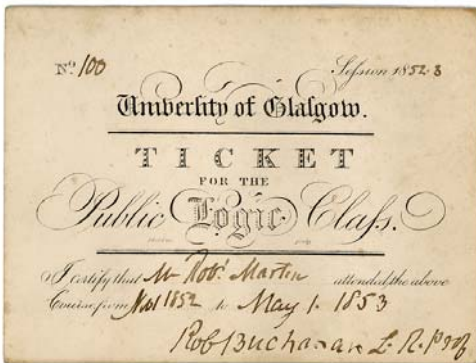 No. 100 Session 1852-3
University of Glasgow.
TICKET
FOR THE
Public Logic Class.
I certify that Mr Robt. Martin attended the above
Course from Novr 1852 to May 1. 1853
Rob Buchanan L. R. Prof